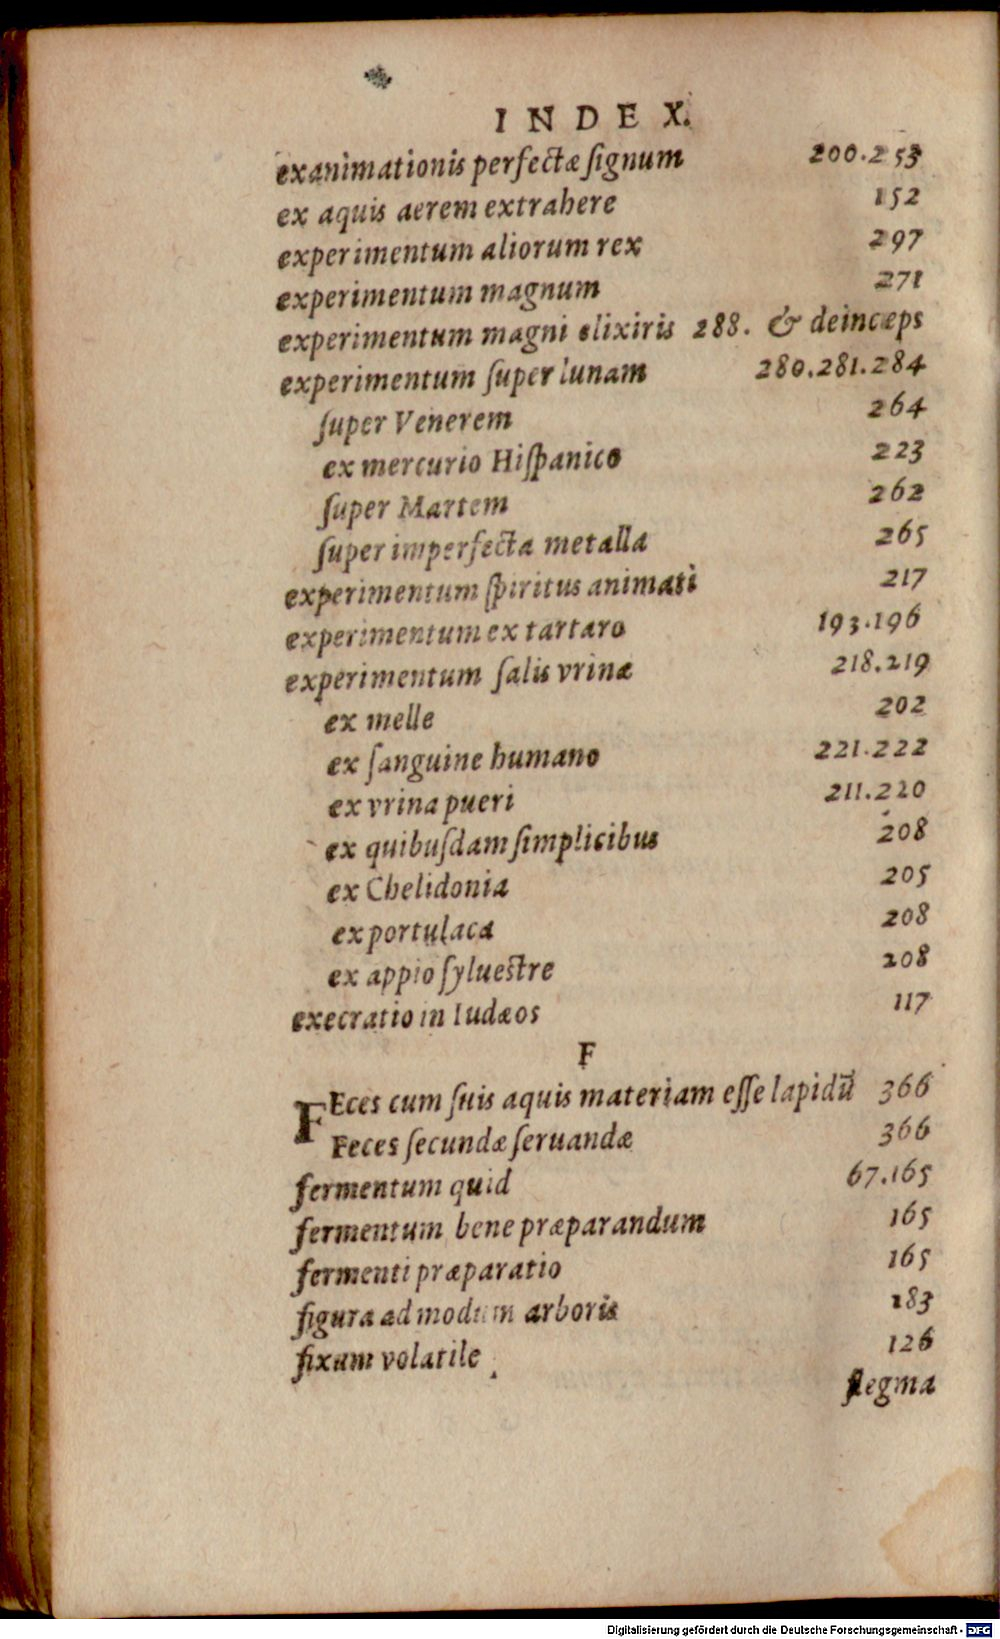 INDEX.
exanimationis perfectæ ſignum 200.253
ex aquis aerem extrahere 152
experimentum aliorum rex 297
experimentum magnum 271
experimentum magni elixiris 288. & deincæps
experimentum ſuper lunam 280.281.284
ſuper Venerem 264
ex mercurio Hiſpanico 223
ſuper Martem 262
ſuper imperfecta metalla 265
experimentum ſpiritus animati 217
experimentum ex tartaro 193.196
experimentum ſalis vrinæ 218.219
ex melle 202
ex ſanguine humano 221.222
ex vrina pueri 211.220
ex quibuſdam ſimplicibus 208
ex Chelidonia 205
ex portulaca 208
ex appio ſylueſtre 208
execratio in Iudæos 117
F
FEces cum ſuis aquis materiam eſſe lapidū 366
Feces ſecundæ ſeruandæ 366
fermentum quid 67.165
fermentum bene præparandum 165
fermenti præparatio 165
figura ad modum arboris 183
fixum volatile 126
flegma
Digitalisierung gefördert durch die Deutsche Forschungsgemeinschaft - DFG